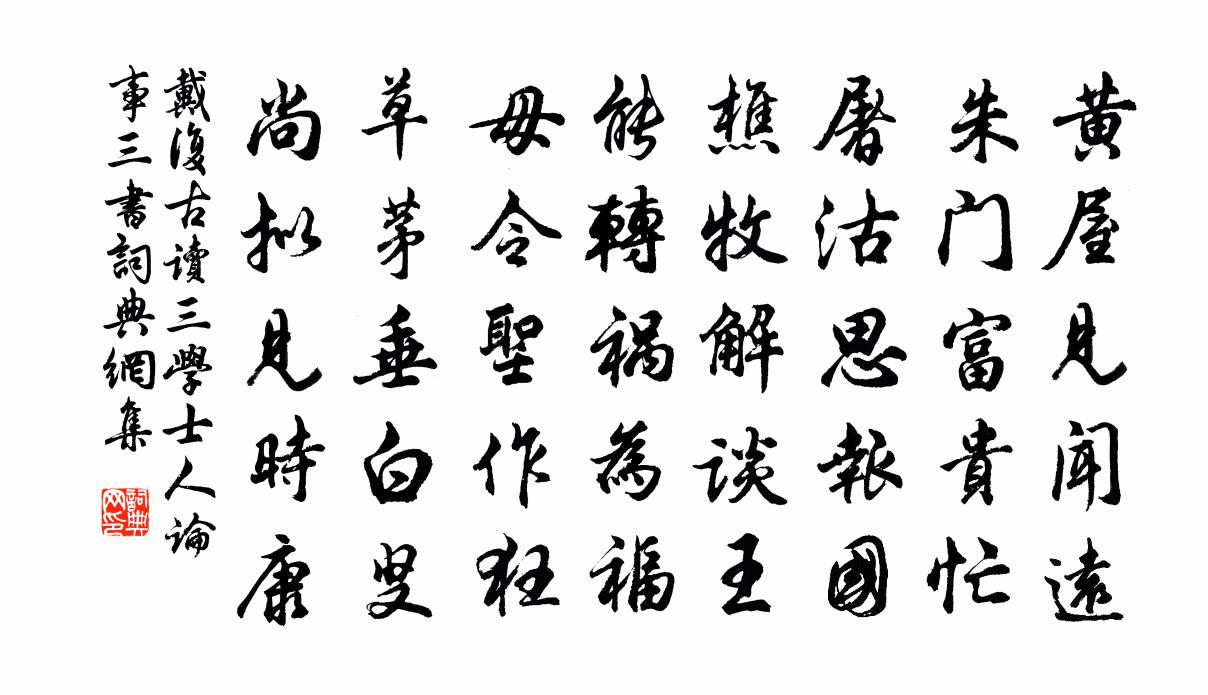 黄屋見闻遠
朱门富貴忙
屠沽思報國
樵牧解談王
能轉禍為福
毋令聖作狂
草茅垂白叟
尚拟見時康
戴復古讀三學士人論
事三書詞典網集
詞典网印